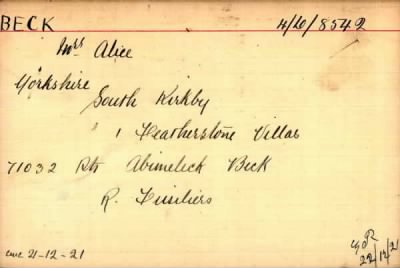 BECK 4/10/8542
Mrs Alice
Yorkshire
South Kirkby
" 1 Featherstone Villas
71032 Pte Abimeleck Beck
R. Fusiliers
21-12-21
22/12/21